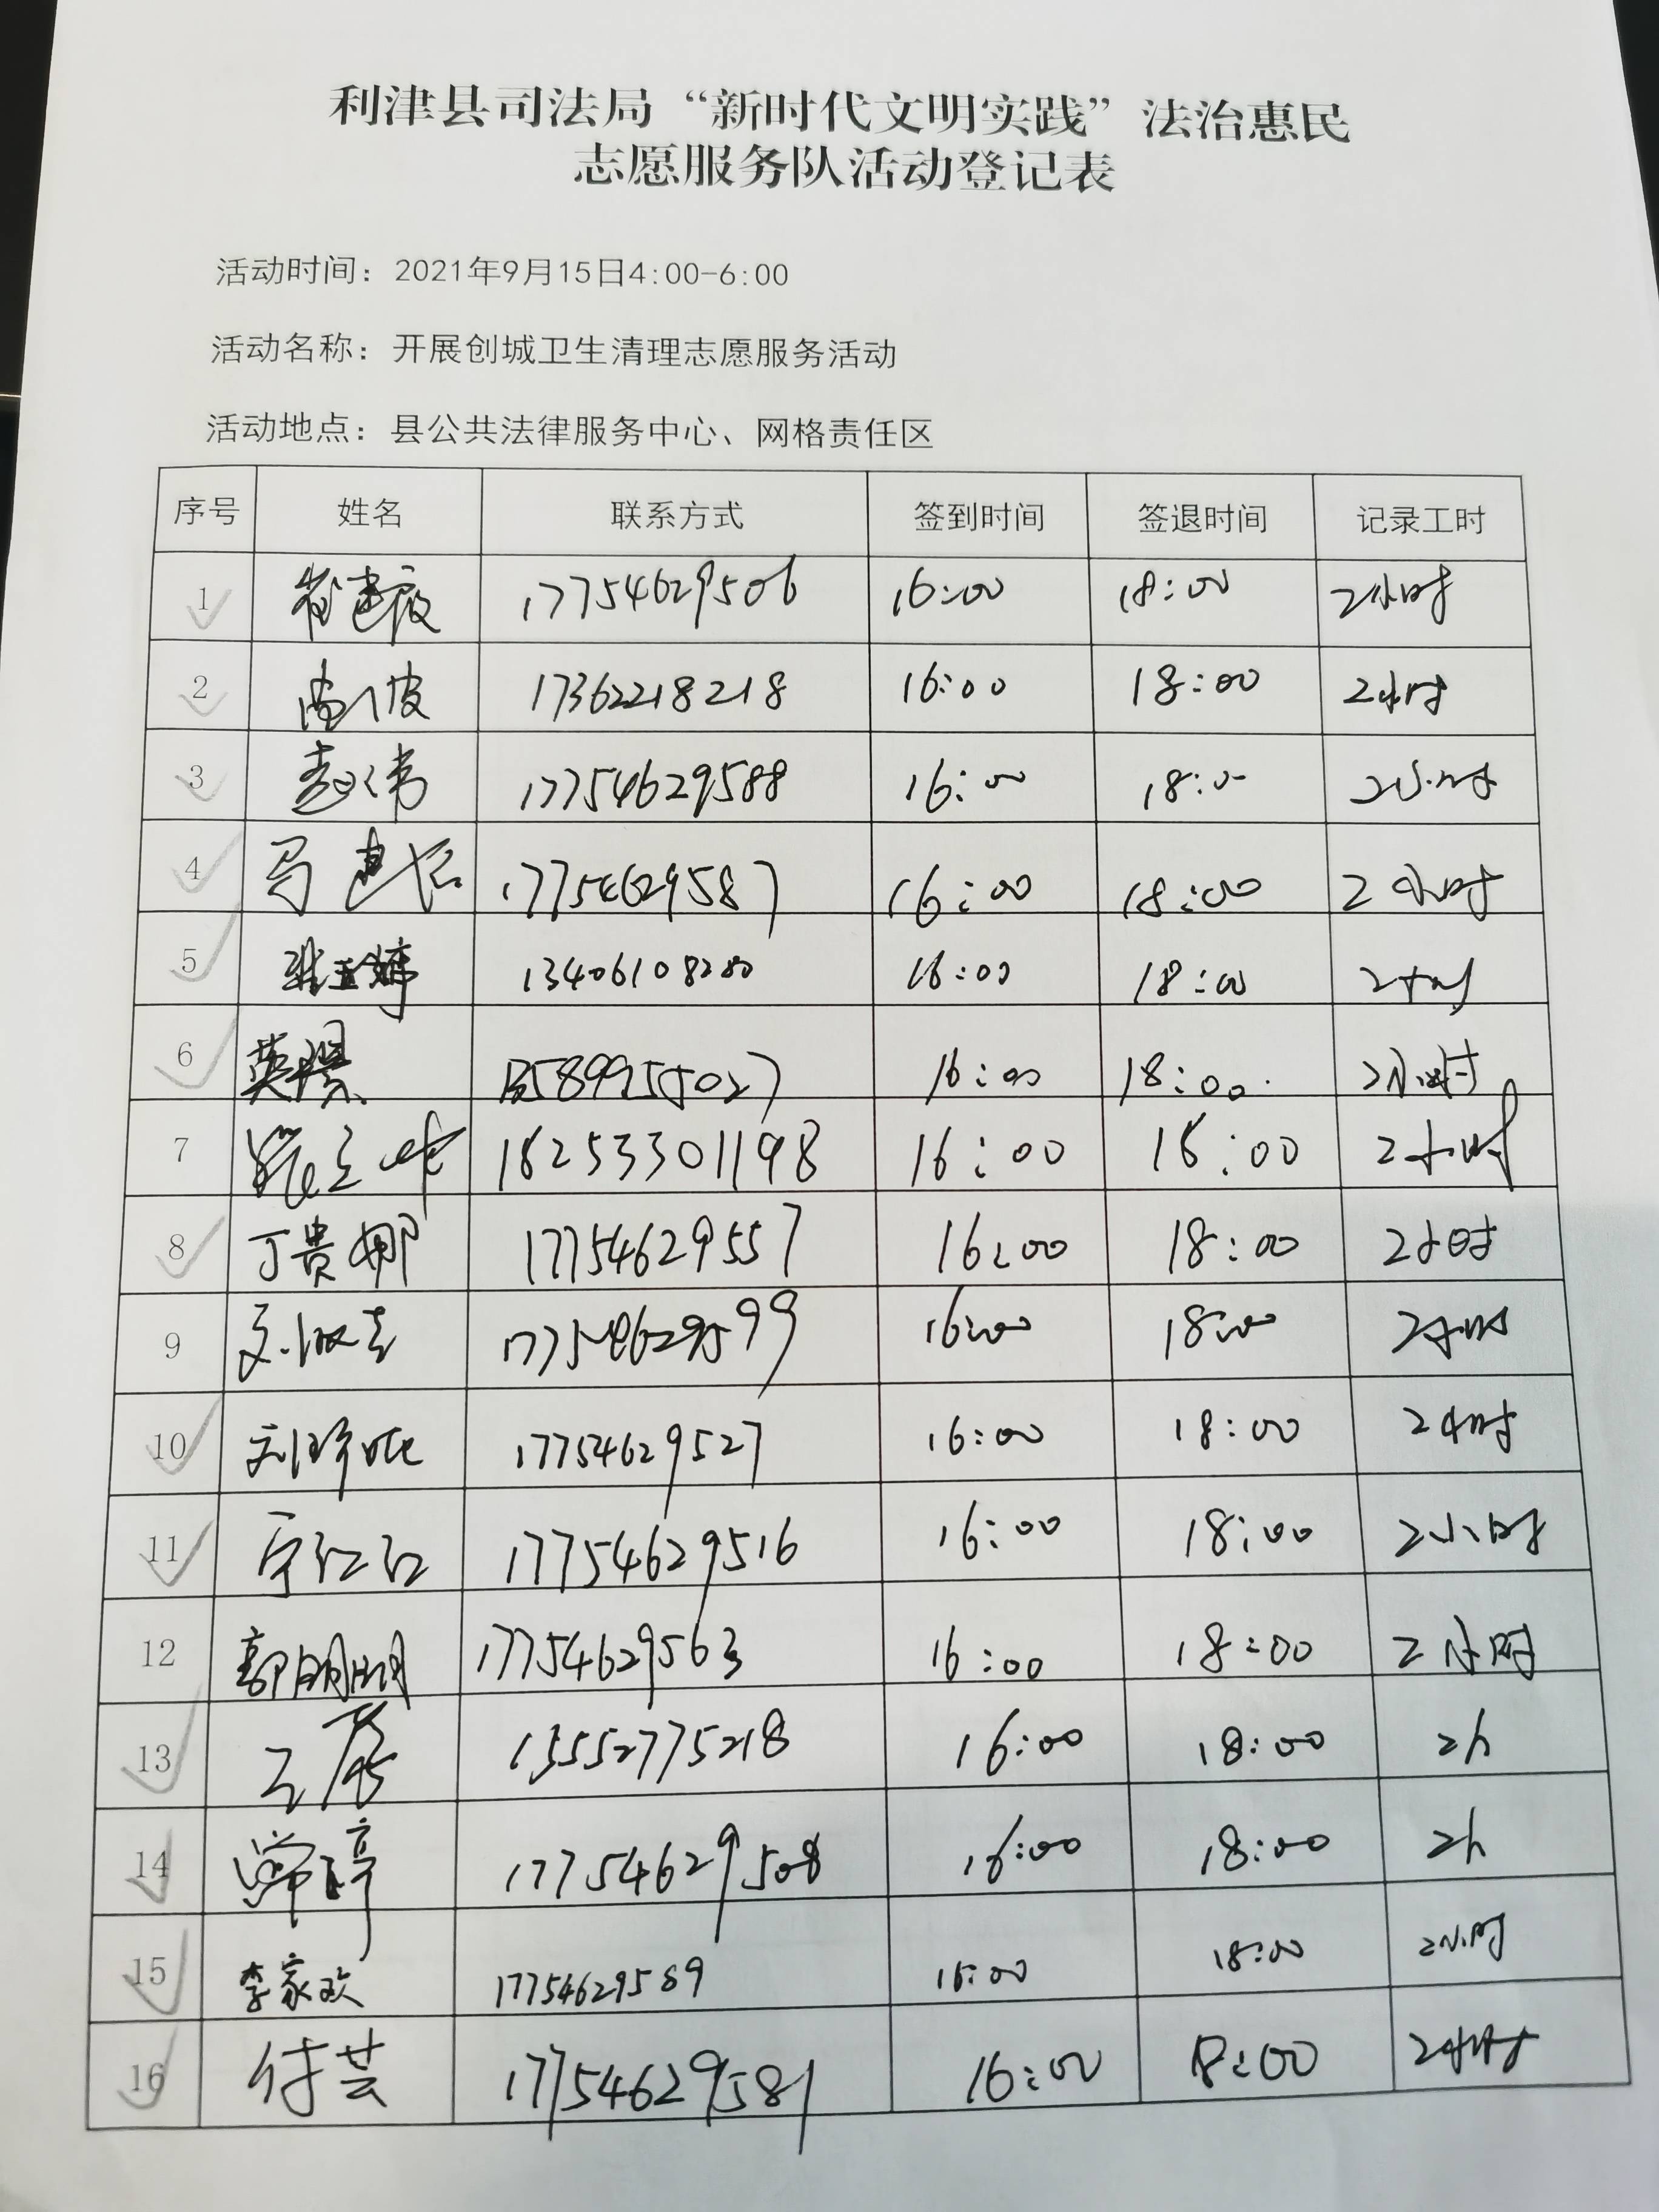 利津县司法局“新时代文明实践”法治惠民
志愿服务队活动登记表
活动时间：2021年9月15日4:00-6:00
活动名称：开展创城卫生清理志愿服务活动
活动地点：县公共法律服务中心、网格责任区
序号 姓名 联系方式 签到时间 签退时间 记录工时
1 17754629506 16:00 18:00 2小时
2 17362218218 16:00 18:00 2小时
3 赵伟 17754629588 16:00 18:00 2小时
4 17754629587 16:00 18:00 2小时
5 张玉婷 13406108280 16:00 18:00 2小时
6 16:00 18:00 2小时
7 18253301198 16:00 18:00 2小时
8 丁贵娜 17754629557 16:00 18:00 2小时
9 17754629599 16:00 18:00 2小时
10 17754629527 16:00 18:00 2小时
11 17754629516 16:00 18:00 2小时
12 郭明明 17754629563 16:00 18:00 2小时
13 13552775218 16:00 18:00 2h
14 常婷 17754629508 16:00 18:00 2h
15 李家欢 17754629589 16:00 18:00 2小时
16 付芸 17754629581 16:00 18:00 2小时